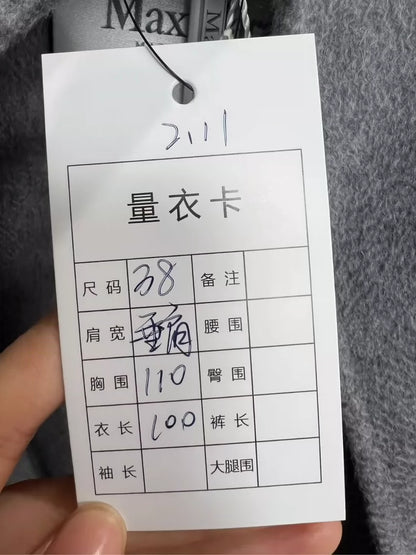 Max
Ma
2.11
量衣卡
尺码 38 备注
肩宽 垂肩 腰围
胸围 110 臀围
衣长 100 裤长
袖长 大腿围